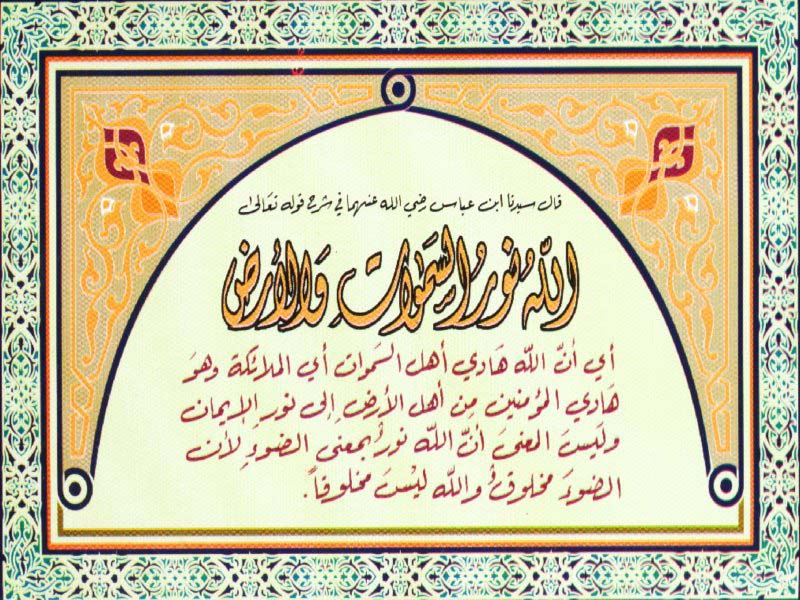 قال سيدنا ابن عباس رضي الله عنهما في شرح قوله تعالى
اللّٰه نُورُ السَّمٰوٰاتِ وَالأَرضِ
أي أنَّ اللّه هَادي أهل السَّموات أي الملائكة وهوَ
هَادي المؤمنين مِن أهل الأرضِ إلى نورِ الإيمان
وليسَ المعنىَ أنَّ اللّه نورٌ بمعنى الضوءِ لأن
الضوءَ مخلوقٌ واللّه ليسَ مخلوقاً.